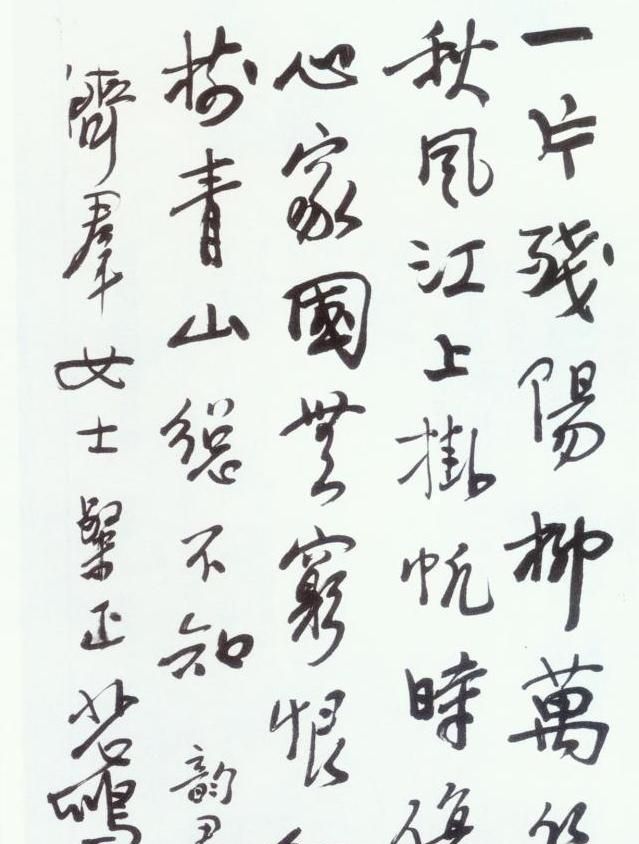 一片殘陽柳萬
秋風江上掛帆時
心家國無窮恨
樹青山總不知 韵
濟羣女士粲正